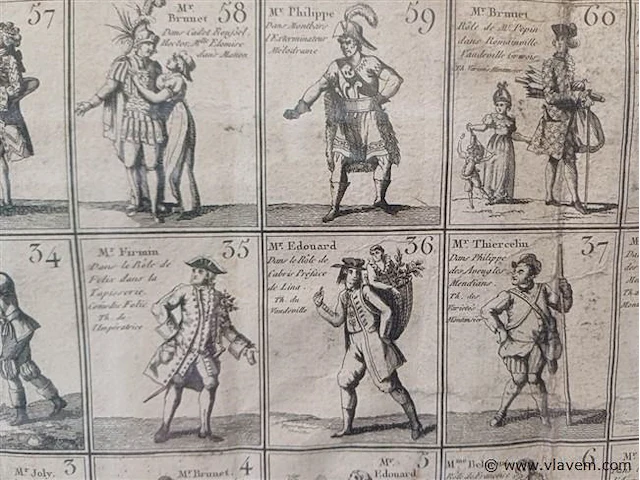 57
Mr. Brunet 58
Dans Cadet Roussel
Hector, Mlle Elomire
dans Manon
Mr. Philippe 59
Dans Montbars
l'Exterminateur
Mélodrame
Mr. Brunet 60
Rôle de Mr. Pépin
dans Romainville
Vaudeville Grivois
Th. Variétés Montansier
34
Mr. Firmin 35
Dans le Rôle de
Felix dans la
Tapisserie
Comédie Folie
Th. de
l'Impératrice
Mr. Edouard 36
Dans le Rôle de
Cabris Préface
de Lina.
Th. du
Vaudeville
Mr. Thiercelin 37
Dans Philippe
des Aveugles
Mendians
Th. des
Variétés
Montansier
Mr. Joly. 3
Mr. Brunet. 4
Mr. Edouard 5
Mme Bel
6
© www.vlavem.com